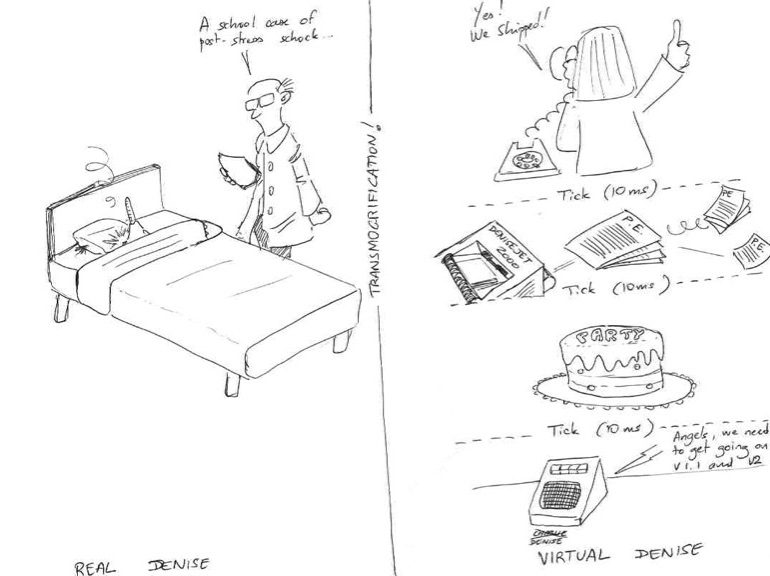 A school case of
post-stress schock...
REAL DENISE
TRANSMOGRIFICATION!
Yes!
We shipped!!
Tick (10 ms)
DENISEJET
2000
P.E.
PE
P.E.
Tick (10 ms)
PARTY
Tick (10 ms)
Angels, we need
to get going on
V1.1 and V2
CHARLIE
DENISE
VIRTUAL DENISE